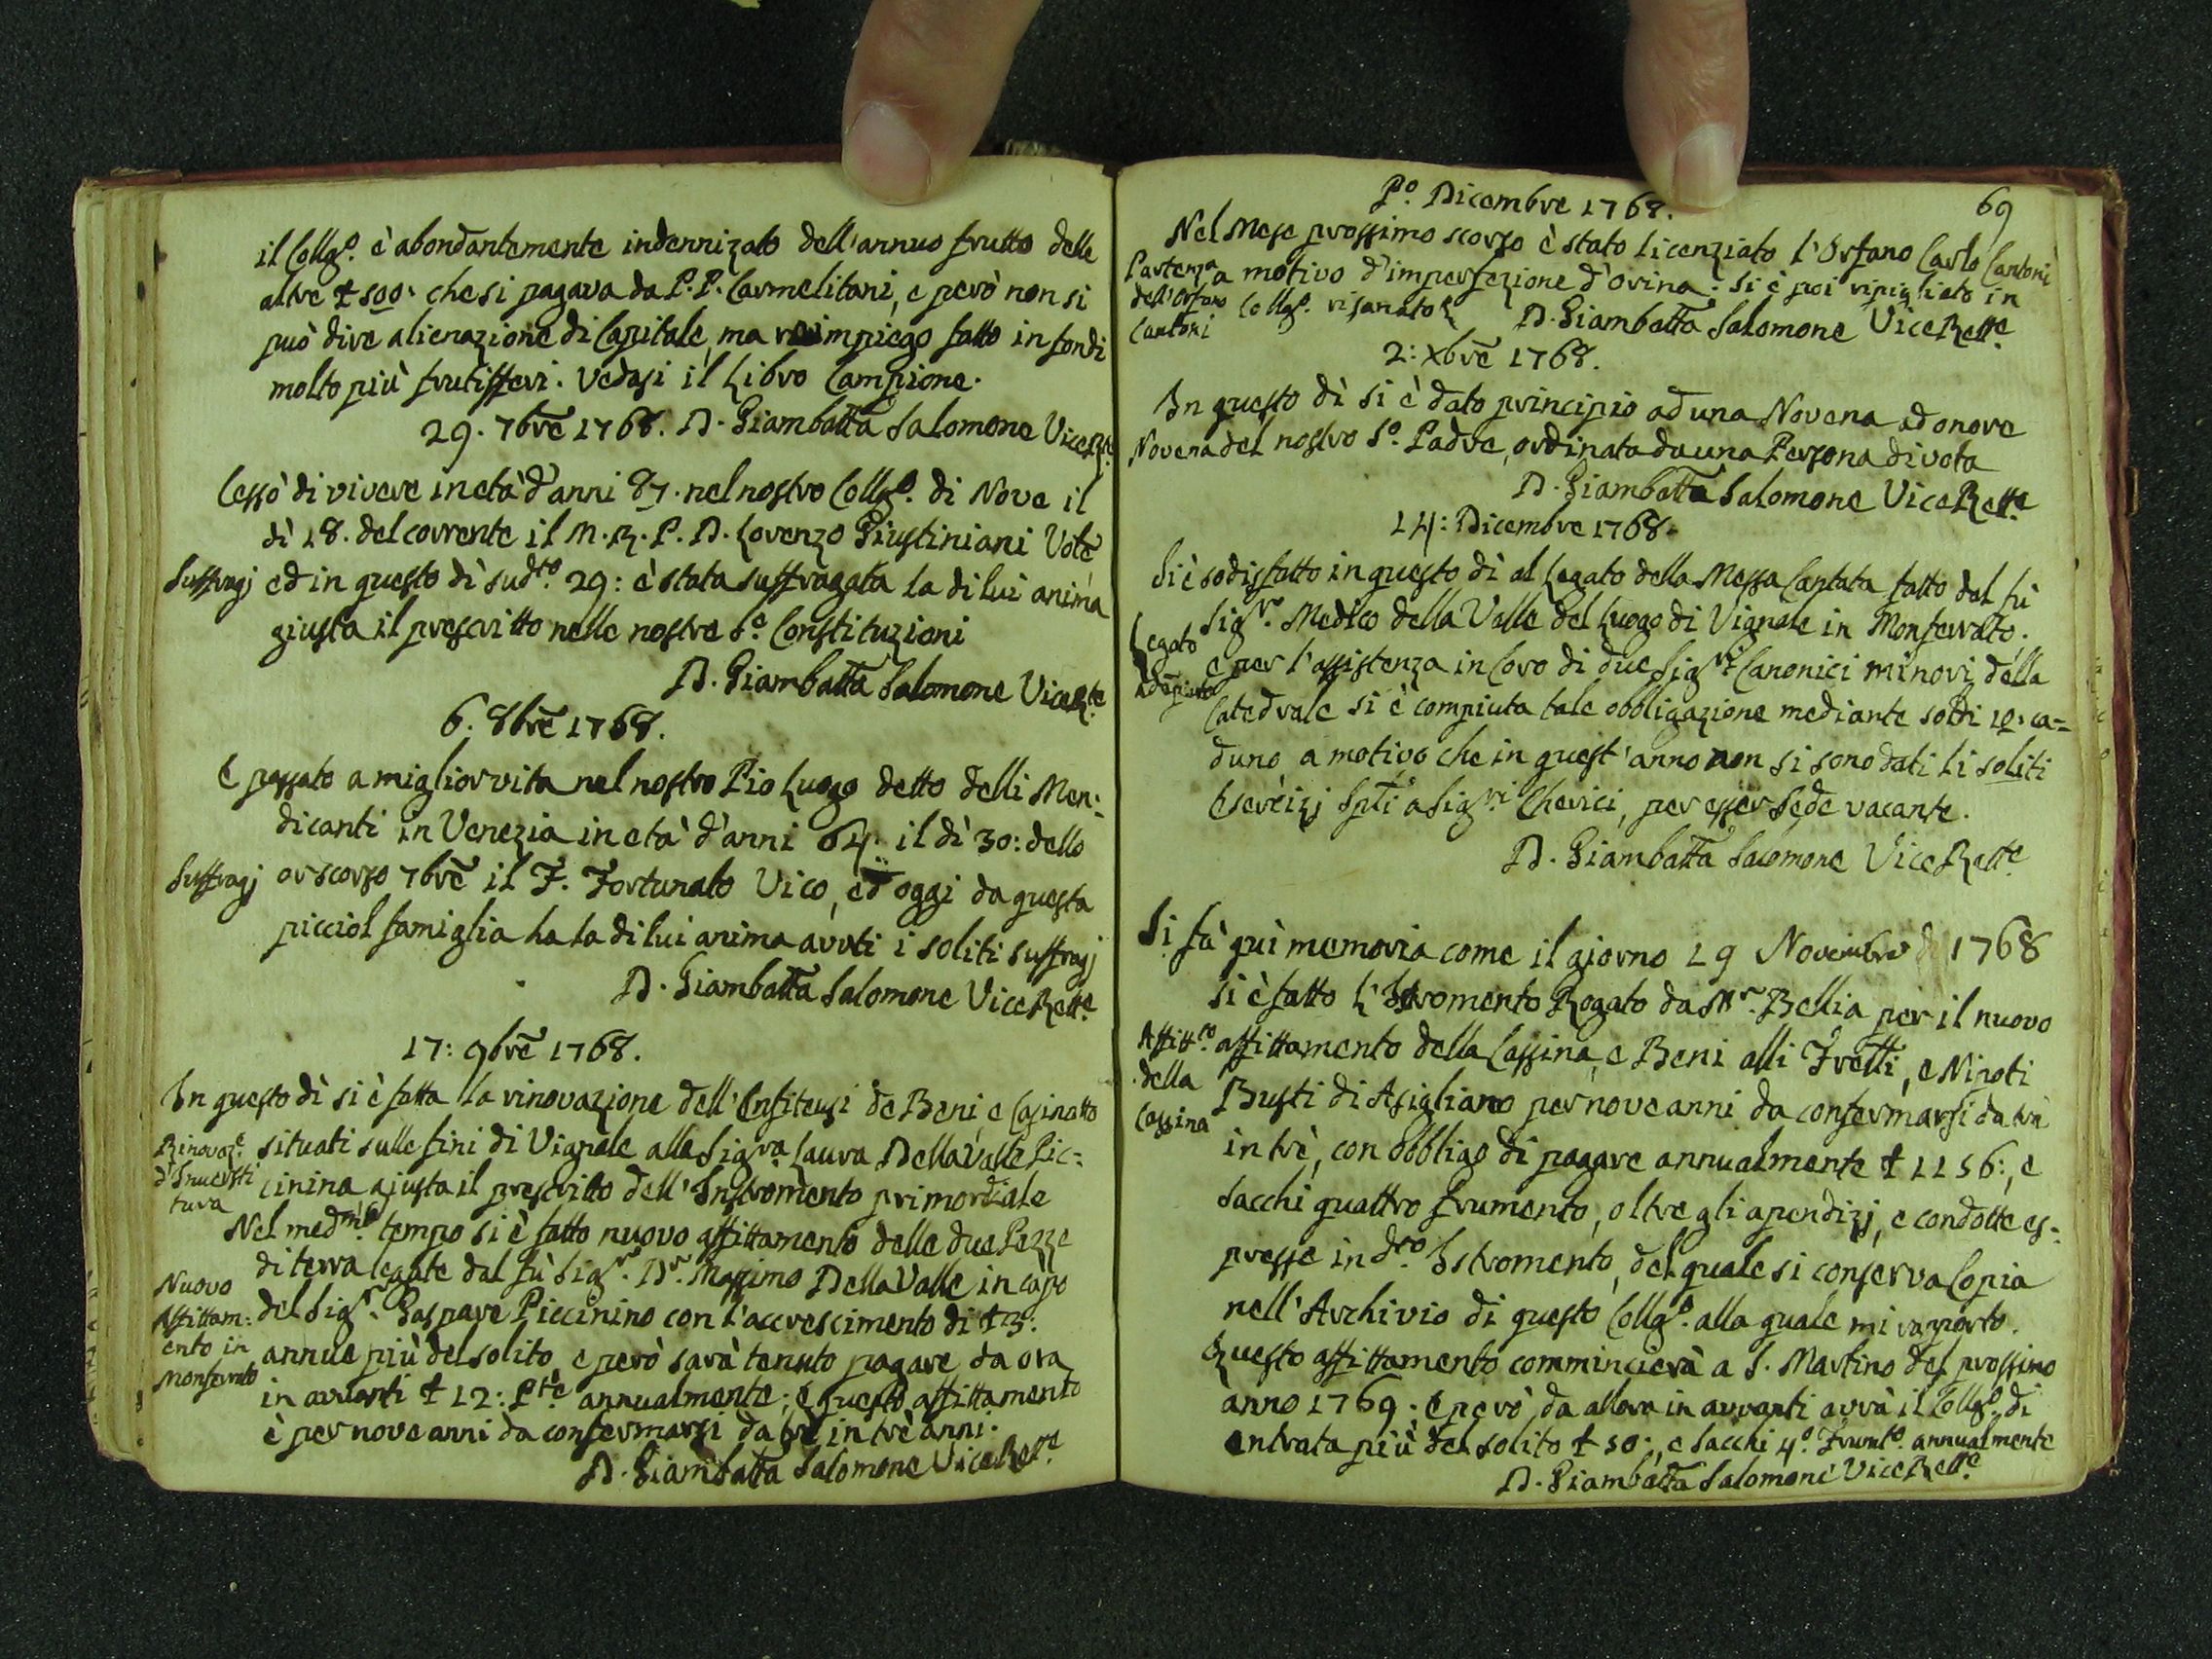 il Collg.o è abondantemente indennizato dell'annuo frutto delle
altre ₶ 500. che si pagava da P.P. Carmelitani, e però non si
può dire alienazione di Capitale, ma rimpiego fatto in fondi
molto più frutifferi. Vedasi il Libro Campione.
29. 7bre 1768. D. Giambatta Salomone ViceRe
Cessò di vivere in età d'anni 87. nel nostro Collg.o di Nove il
dì 18. del corrente il M.R.P.D. Lorenzo Giustiniani Vole
Suffragj
ed in questo dì sud.to 29: è stata suffragata la di lui anima
giusta il prescritto nelle nostre S.e Constituzioni
D. Giambatta Salomone ViceR.te
6. 8bre 1768.
È passato a miglior vita nel nostro Pio Luogo detto delli Men:
dicanti in Venezia in età d'anni 64. il dì 30: dello
Suffragj
or scorso 7bre il F. Fortunato Vico, ed oggi da questa
picciol famiglia ha la di lui anima avuti i soliti suffragj
D. Giambatta Salomone ViceRett.e
17: 9bre 1768.
In questo dì si è fatta la rinovazione dell'Enfiteusi de Beni, e Casinatto
Rinovaz.e
d'Investi
tura
situati sulle fini di Vignale alla Sig.ra Laura Della Valle Pic:
cinina ajusta il prescritto dell'Instromento primordiale
Nel med.mo tempo si è fatto nuovo affittamento delle due Pezze
di terra legate dal fù Sig.r D.r Massimo Della Valle in capo
Nuovo
Affittam:
ento in
Monferrato
del Sig.r Gaspare Piccinino con l'accrescimento di ₶ 3:
annue più del solito, e però sarà tenuto pagare da ora
in avvanti ₶ 12: P.te annualmente; e questo affittamento
è per nove anni da confermarsi da trè in trè anni.
D. Giambatta Salomone ViceRett.e
69
P.o Dicembre 1768.
Nel Mese prossimo scorso è stato licenziato l'Orfano Carlo Cantoni
Partenza
dell'Orfano
Cantoni
a motivo d'imperfezione d'orina; si è poi ripigliato in
Collg.o risanato D. Giambatta Salomone ViceRett.e
2: Xbre 1768.
In questo dì si è dato principio ad una Novena ad onore
Novena
del nostro S.o Padre, ordinata da una Persona divota
D. Giambatta Salomone ViceRett.e
14: Dicembre 1768.
Si è sodisfatto in questo dì al Legato della Messa Cantata fatto dal fù
Sig.r Medico della Valle del Luogo di Vignale in Monferrato.
Legato
adempiuto
e per l'assistenza in Coro di due Sig.ri Canonici minori della
Catedrale si è compiuta tale obbligazione mediante soldi 10: ca=
duno a motivo che in quest'anno non si sono dati li soliti
Esercizj Spti a Sig.ri Cherici, per esser Sede vacante.
D. Giambatta Salomone ViceRett.e
Si fà quì memoria come il giorno 19 Novembre 1768
si è fatto l'Istromento Rogato da M.r Bellia per il nuovo
Affitt.to
della
Cassina
affittamento della Cassina, e Beni alli Fretti, e Nipoti
Busti di Asigliano per nove anni da confermarsi da trè
in trè, con obbligo di pagare annualmente ₶ 1156:, e
Sacchi quattro frumento, oltre gli apendizj, e condotte es=
presse in d.to Istromento, del quale si conserva Copia
nell'Archivio di questo Collg.o alla quale mi rapporto.
Questo affittamento commincierà a S. Martino del prossimo
anno 1769. e però da allora in avvanti avrà il Collg.o di
entrata più del solito ₶ 50:, e Sacchi 4.o Frum.to annualmente
D. Giambatta Salomone ViceRett.e